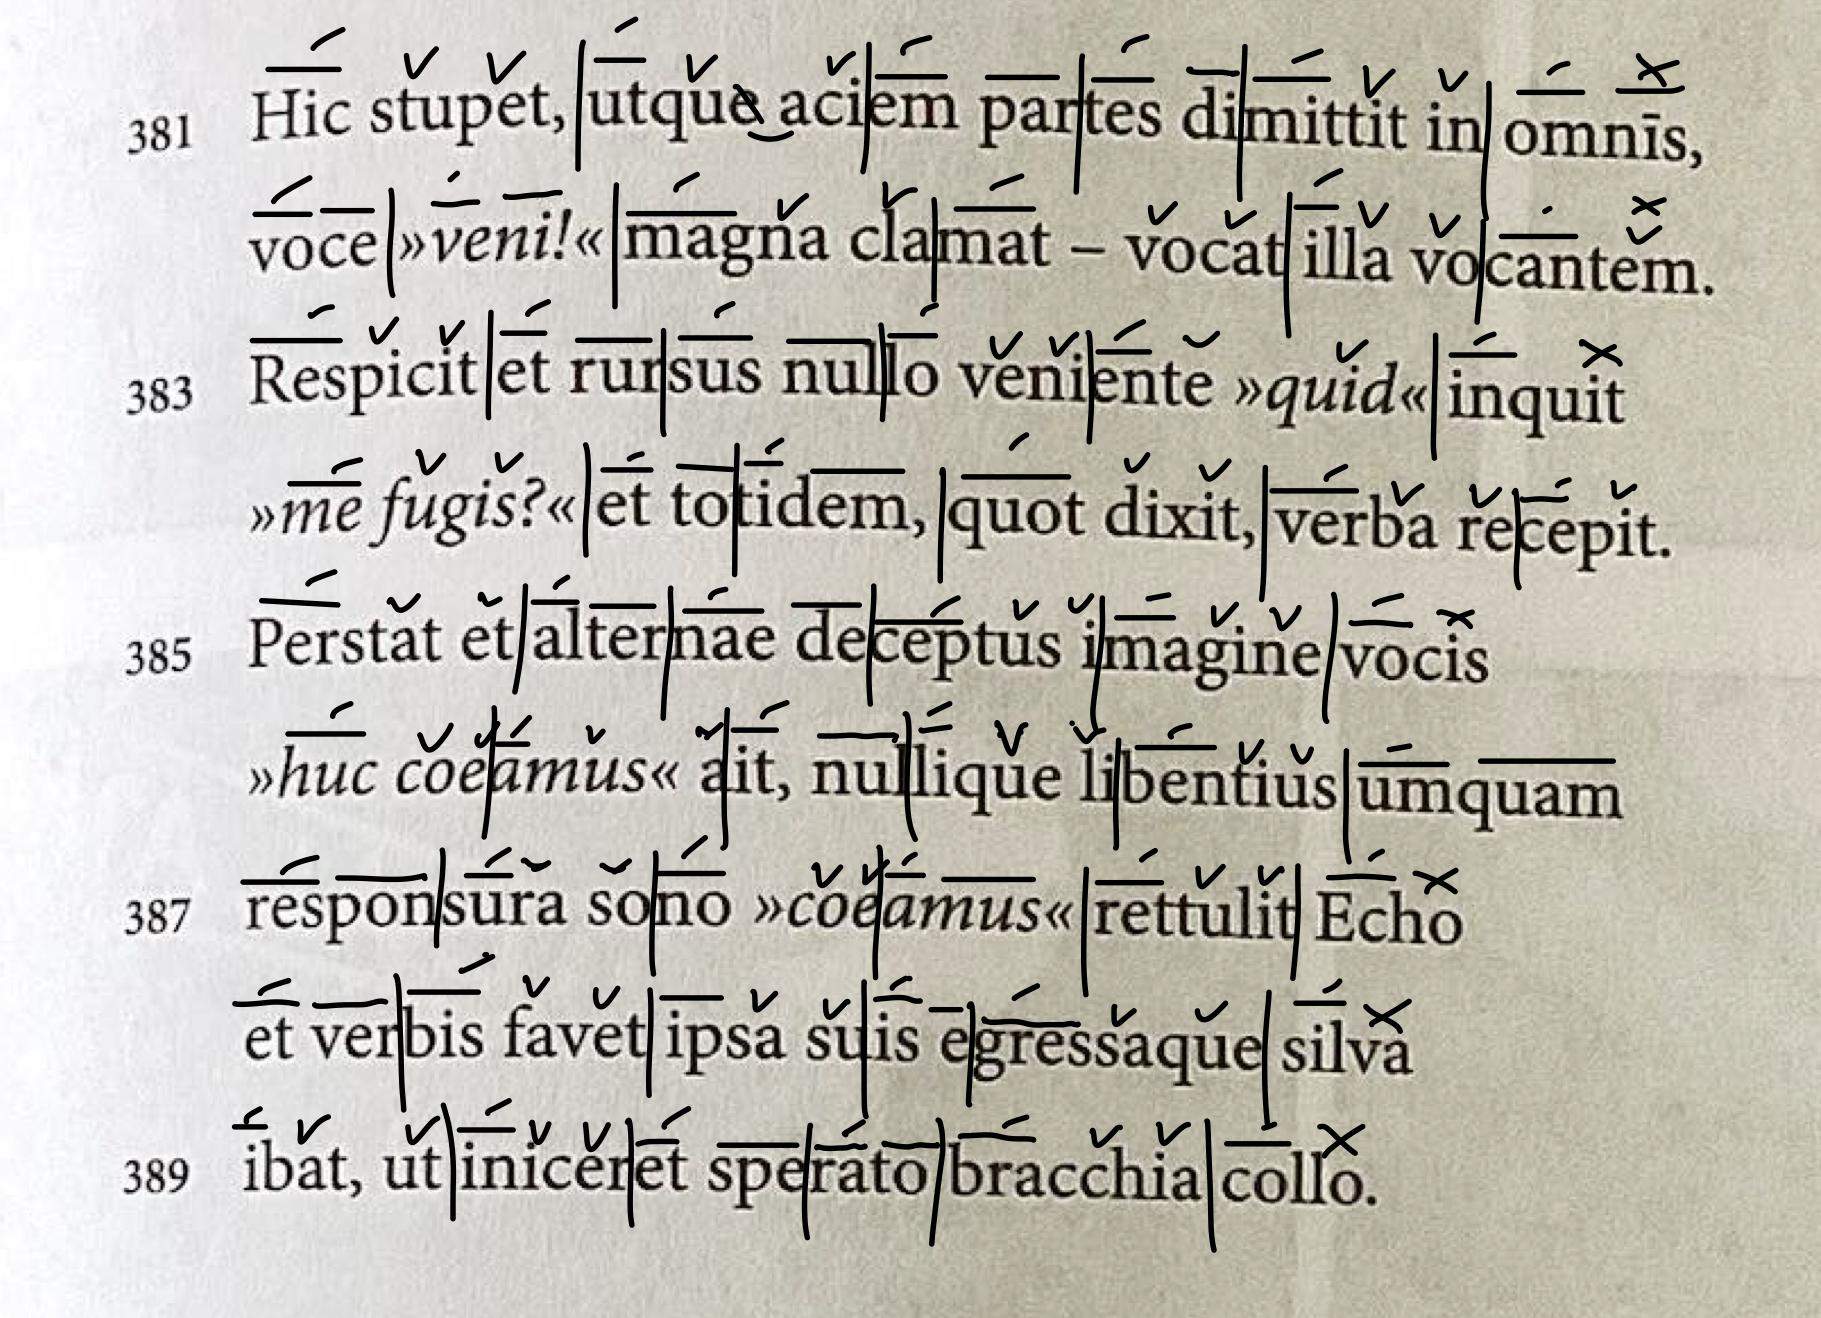 381 Hic stupet, utque aciem partes dimittit in omnīs,
voce »veni!« magna clamat – vocat illa vocantem.
383 Respicit et rursus nullo veniente »quid« inquit
»me fugis?« et totidem, quot dixit, verba recepit.
385 Perstat et alternae deceptus imagine vocis
»huc coeamus« ait, nullique libentius umquam
387 responsura sono »coeamus« rettulit Echo
et verbis favet ipsa suis egressaque silva
389 ibat, ut iniceret sperato bracchia collo.